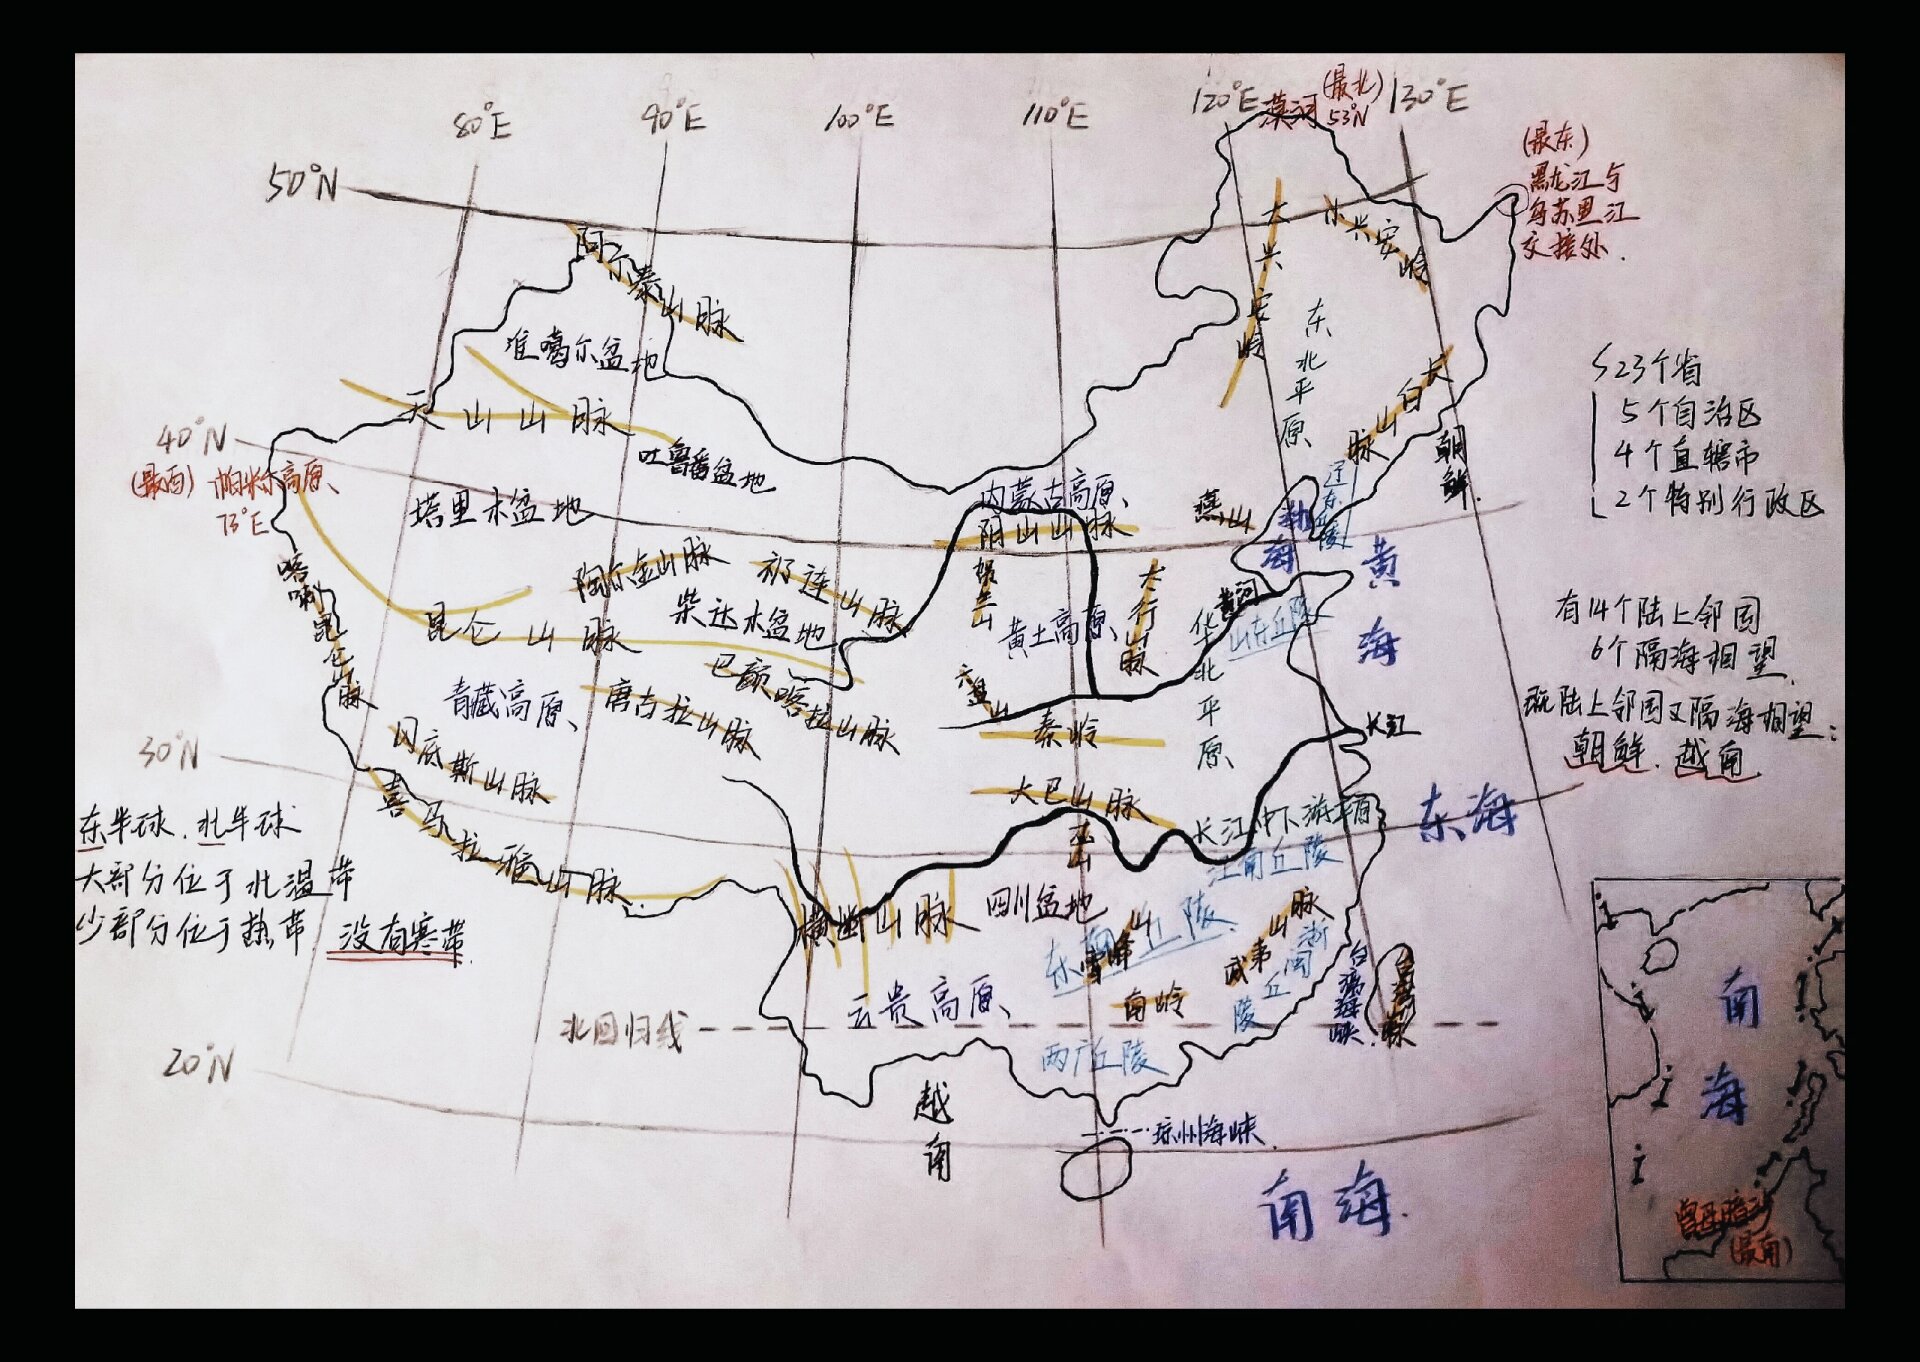 80°E
90°E
100°E
110°E
120°E
130°E
漠河
(最北)
53°N
(最东)
黑龙江与
乌苏里江
交接处.
50°N
阿尔泰山脉
准噶尔盆地
天山山脉
吐鲁番盆地
大兴安岭
小兴安岭
东北平原
长白山脉
朝鲜.
40°N
(最西)帕米尔高原、
73°E
塔里木盆地
内蒙古高原、
阴山山脉
燕山
渤海
辽东丘陵
黄海
喀喇昆仑山脉
昆仑山脉
阿尔金山脉
祁连山脉
柴达木盆地
贺兰山
黄土高原、
太行山脉
黄河
华北平原
山东丘陵
巴颜喀拉山脉
青藏高原、
唐古拉山脉
六盘山
秦岭
长江
冈底斯山脉
30°N
喜马拉雅山脉
大巴山脉
巫山
长江中下游平原
江南丘陵
东海
横断山脉
四川盆地
雪峰山
东南丘陵
武夷山脉
浙闽丘陵
南岭
云贵高原、
台湾海峡.
台湾山脉
北回归线
两广丘陵
20°N
越南
琼州海峡.
南海.
23个省
5个自治区
4个直辖市
2个特别行政区
有14个陆上邻国
6个隔海相望.
既陆上邻国又隔海相望:
朝鲜.越南
东半球.北半球
大部分位于北温带
少部分位于热带.没有寒带.
南海
曾母暗沙
(最南)